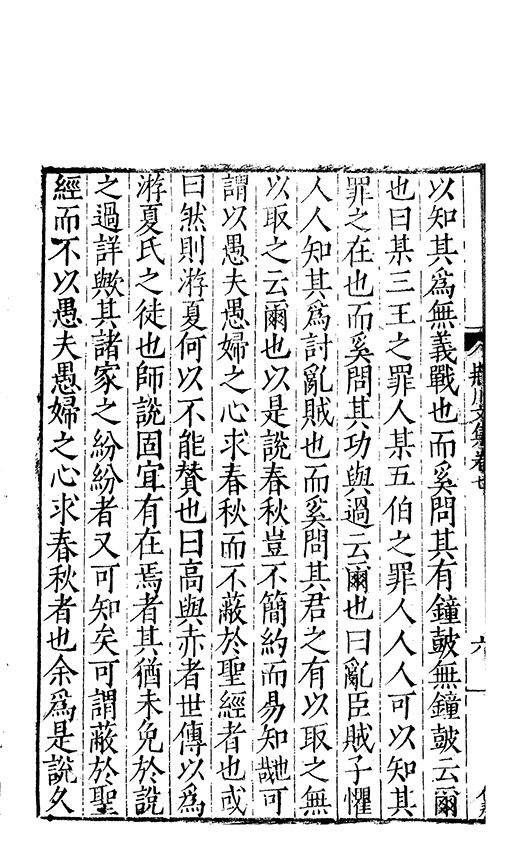 文集卷七
六
以知其爲無義戰也而奚問其有鐘皷無鐘皷云爾
也曰某三王之罪人某五伯之罪人人人可以知其
罪之在也而奚問其功與過云爾也曰亂臣賊子懼
人人知其爲討亂賊也而奚問其君之有以取之無
以取之云爾也以是說春秋豈不簡約而易知哉可
謂以愚夫愚婦之心求春秋而不蔽於聖經者也或
曰然則游夏何以不能賛也曰高與赤者世傳以爲
游夏氏之徒也師說固宜有在焉者其猶未免於說
之過詳歟其諸家之紛紛者又可知矣可謂蔽於聖
經而不以愚夫愚婦之心求春秋者也余爲是說久